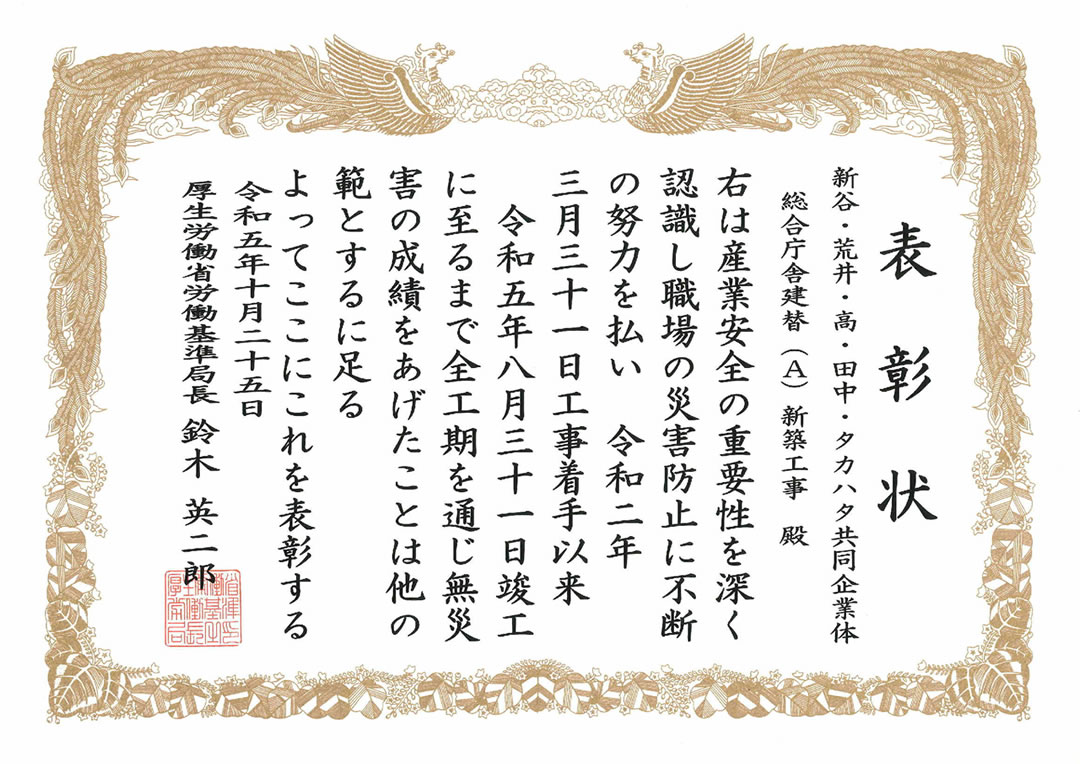 表彰状
新谷・荒井・高・田中・タカハタ共同企業体
総合庁舎建替（A）新築工事 殿
右は産業安全の重要性を深く
認識し職場の災害防止に不断
の努力を払い 令和二年
三月三十一日工事着手以来
令和五年八月三十一日竣工
に至るまで全工期を通じ無災
害の成績をあげたことは他の
範とするに足る
よってここにこれを表彰する
令和五年十月二十五日
厚生労働省労働基準局長 鈴木 英二郎